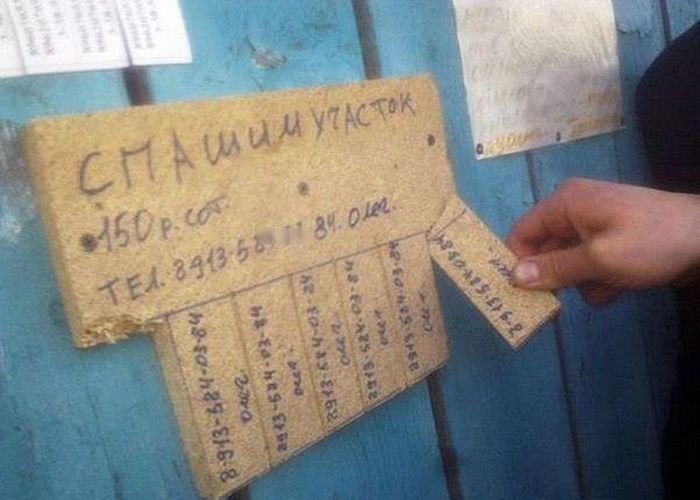 СПАШИМ УЧАСТОК
150 р. сот.
ТЕЛ. 8913·58 84. Олег.
8-913-584-03-84
Олег.
8913-584-03-84
Олег.
8913-584-03-84
Олег.
8913-584-03-84
Олег.
8913-584-03-84
Олег.
8-913-584-03-84
Олег.